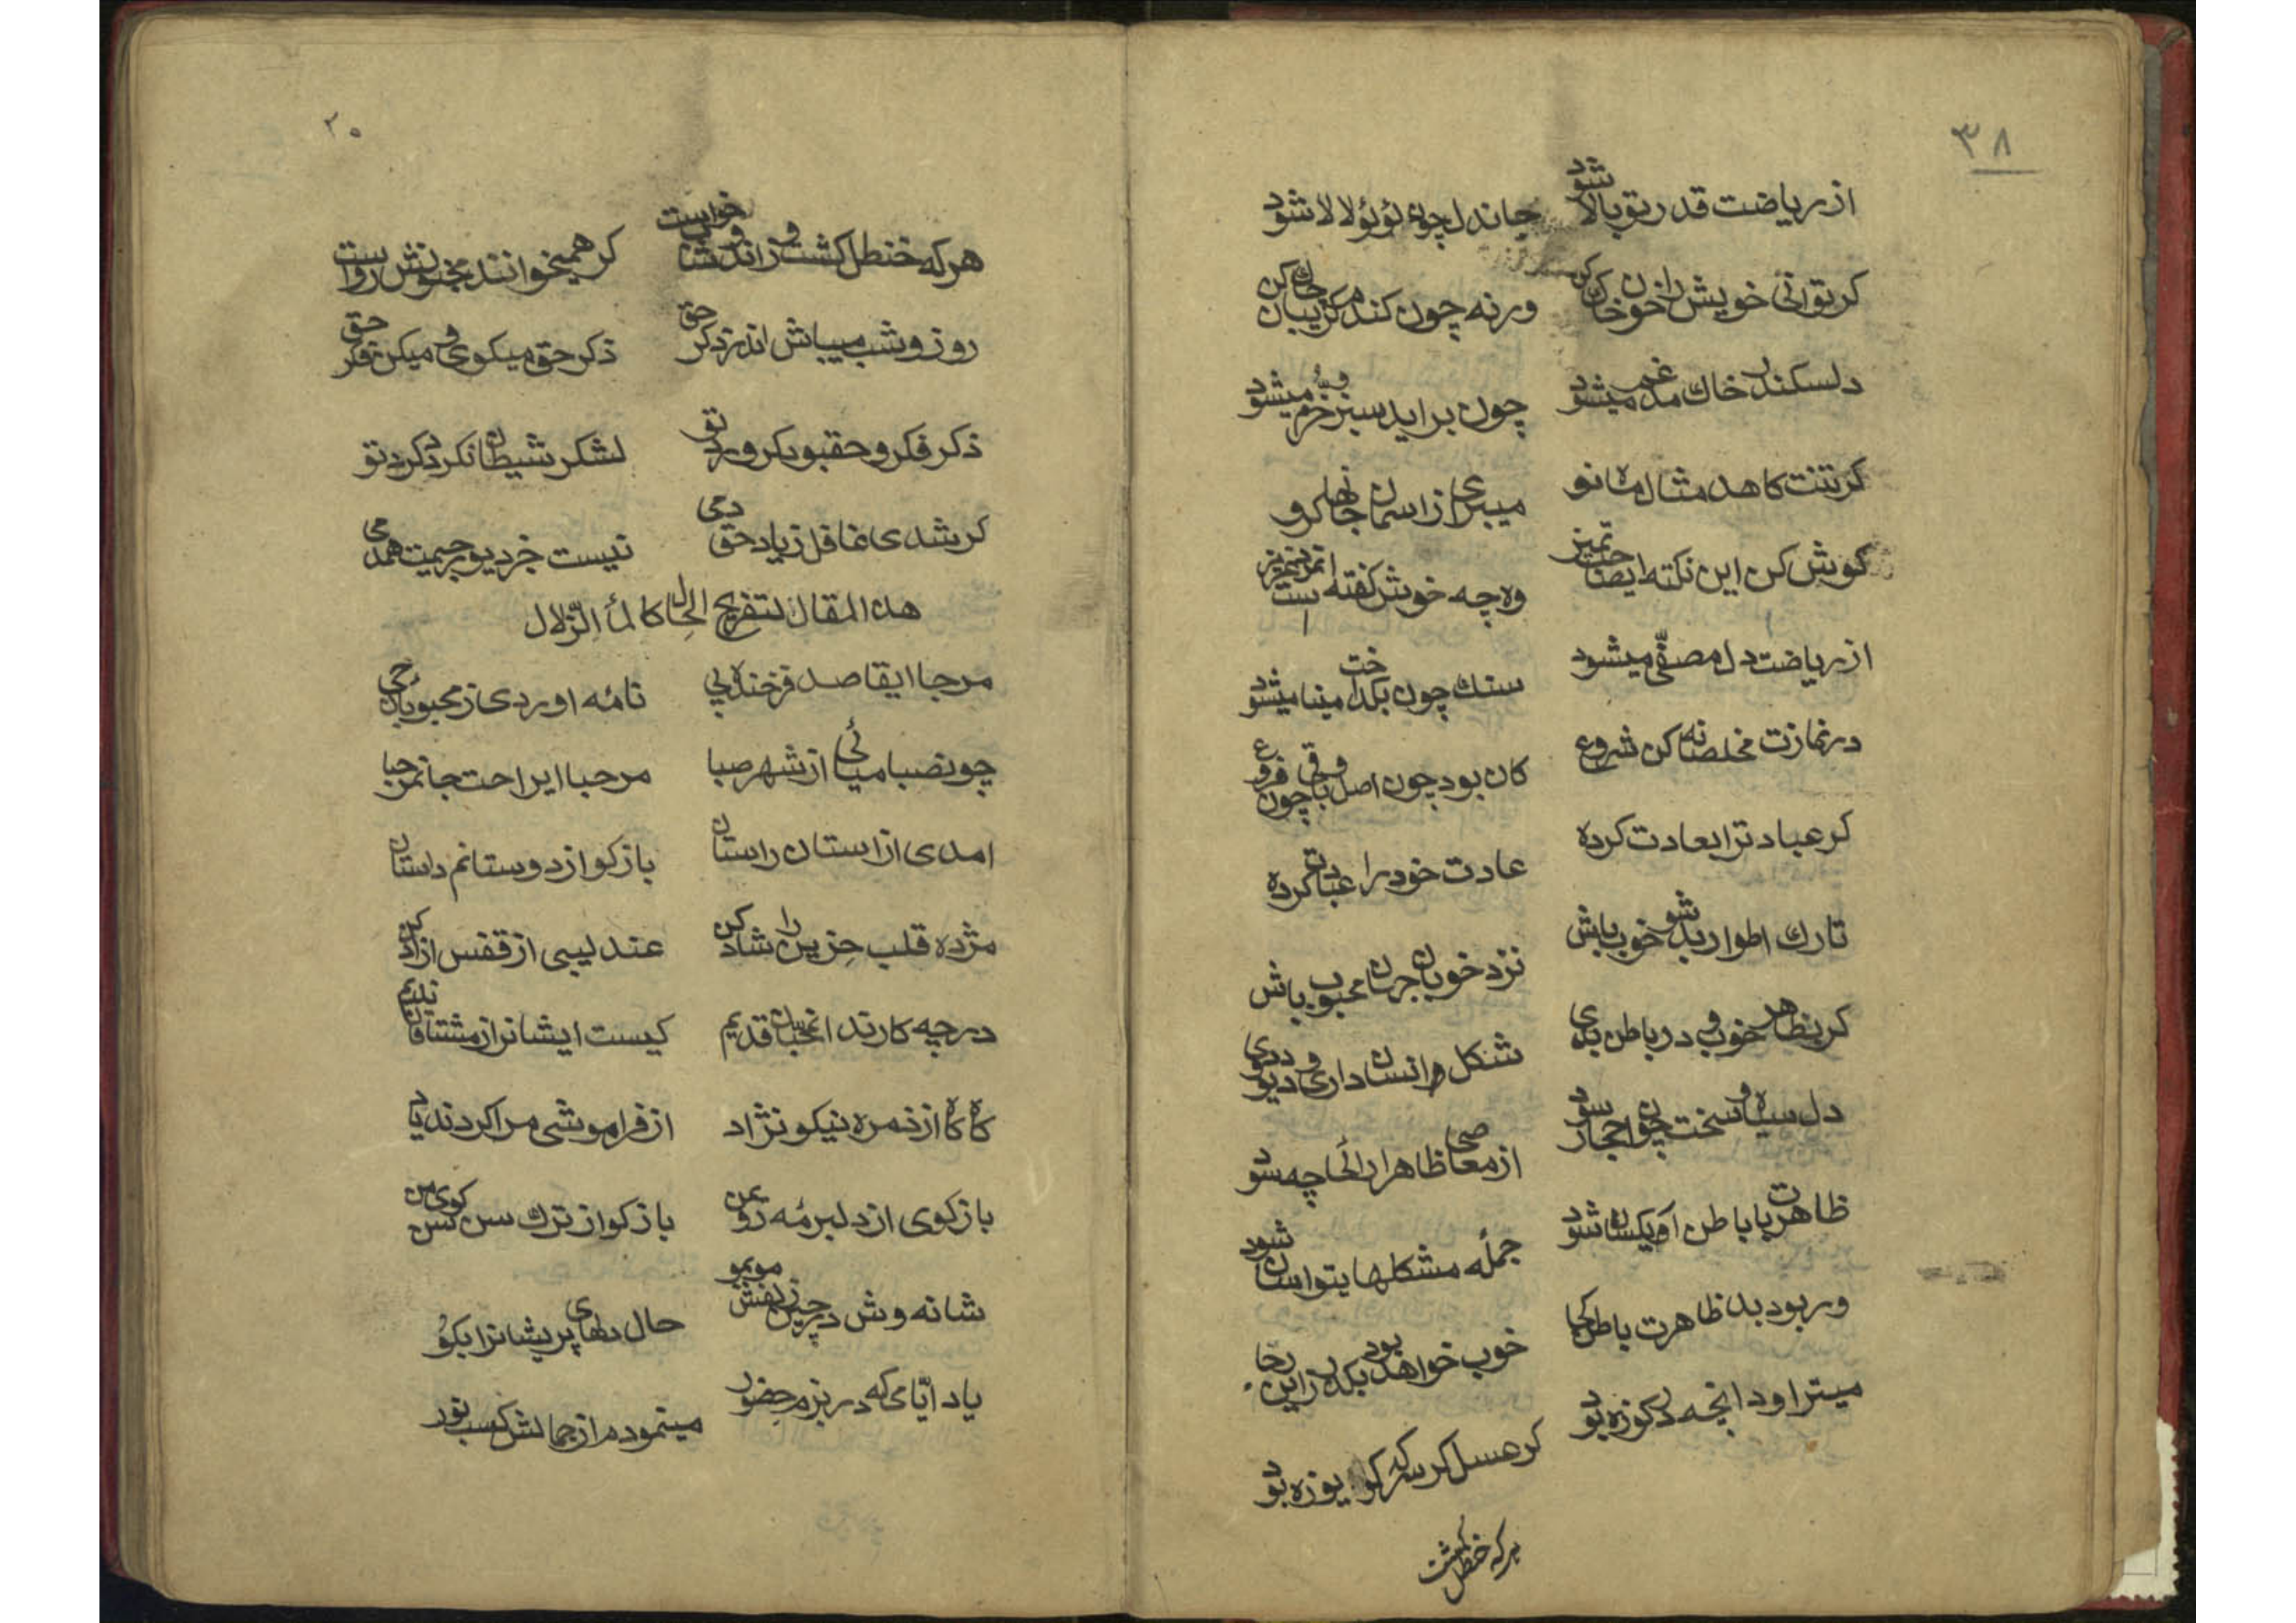 ٣٨
از ریاضت قدر تو بالا شود
جاندل چون لؤلؤ لالا شود
کر توانی خویش را زن خو خاک کن
ورنه چون کندم کریبان چاک کن
دلسکندر خاك مدغم میشود
چون براید سبز و خرم میشود
کر تنت کاهد مثال ماه نو
میبری از اسمان جانها کرو
کوش کن این نکته ایصاحب تمیز
وه چه خوش کفته است
از ریاضت دل مصفّی میشود
سنك چون بکداخت مینا میشود
در نمازت مخلصانه کن شروع
کان بود چون اصل و باقی چون فروع
کر عبادترا بعادت کرده
عادت خود را عبادت کرده
تارك اطوار بد شو خوب باش
نزد خوبان جهان محبوب باش
کر بظاهر خوب و در باطن بدی
شکل انسان داری و دیو و ددی
دل سیاه و سخت چون احجار سود
از معاصی ظاهرا رائحا چه سود
ظاهرت با باطن ار یکسان شود
جمله مشکلها بتو اسان شود
ور بود بد ظاهرت باطن کجا
خوب خواهد بود بکذر زاین رجا
میتراود انچه در کوزه بود
کر عسل کر سرکه کر بوزه بود
هرکه خنطل کشت
٢٠
هرکه خنطل کشت و زاند خواست
کر همیخوانند مجنونش رواست
روز و شب میباش اندر ذکر حق
ذکر حق میکوی و میکن فکر حق
ذکر فکر و حقبود کر ورد تو
لشکر شیطان نکردد کرد تو
کر شدی غافل ز یاد حق دمی
نیست خر دیو رجیمت همدمی
هذا المقال لتفریح الحال کالمأ الزّلال
مرحبا ایقاصد فرخنده پی
نامه اوردی ز محبوبان حی
چونصبا میائی از شهر صبا
مرحبا ایراحت جانمرحبا
امدی از استان راستان
بازکو از دوستانم داستان
مژده قلب حزین را شاد کن
عندلیبی از قفس ازاد کن
در چه کارند انمحبان قدیم
کیست ایشانرا ز مشتاقان ندیم
کاه کاه از زمره نیکو نژاد
از فراموشی مرا کردند یاد
بازکوی از دلبر مه روی من
بازکو از ترك سن سن کوی من
شانه وش در چین زلفش موبمو
حال دلهای پریشانرا بکو
یاد ایّامی که در بزم حضور
مینمودم از جمالش کسب نور